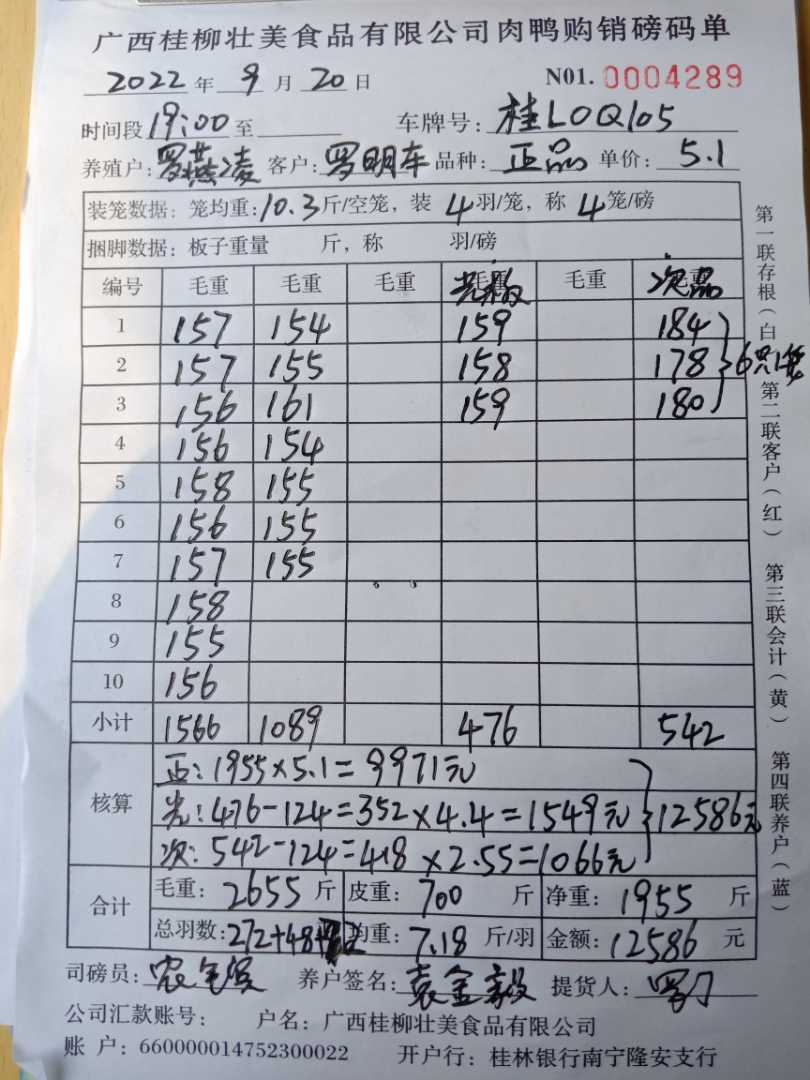 广西桂柳壮美食品有限公司肉鸭购销磅码单
2022 年 9 月 20 日 N01. 0004289
时间段 19:00 至 车牌号: 桂L0Q105
养殖户: 罗燕凌 客户: 罗明车 品种: 正品 单价: 5.1
装笼数据: 笼均重: 10.3 斤/空笼, 装 4 羽/笼, 称 4 笼/磅
捆脚数据: 板子重量 斤, 称 羽/磅
编号 毛重 毛重 毛重 毛重 毛重 次品
1 157 154 159 184
2 157 155 158 178 6只1笼
3 156 161 159 180
4 156 154
5 158 155
6 156 155
7 157 155
8 158
9 155
10 156
小计 1566 1089 476 542
核算 正: 1955×5.1=9971元
光: 476-124=352×4.4=1549元 12586元
次: 542-124=418×2.55=1066元
合计 毛重: 2655 斤 皮重: 700 斤 净重: 1955 斤
总羽数: 272+48+ 均重: 7.18 斤/羽 金额: 12586 元
司磅员: 养户签名: 袁金毅 提货人: 罗
公司汇款账号: 户名: 广西桂柳壮美食品有限公司
账 户: 660000014752300022 开户行: 桂林银行南宁隆安支行
第一联存根(白) 第二联客户(红) 第三联会计(黄) 第四联养户(蓝)